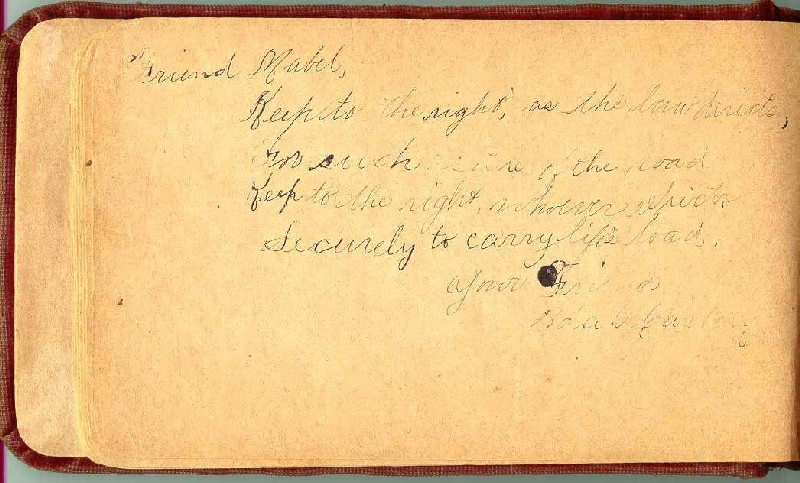 Friend Mabel,
Keep to the right, as the law directs,
For such rule of the road
Keep to the right, whoever expects
Securely to carry life's load.
Your Friend
Ida